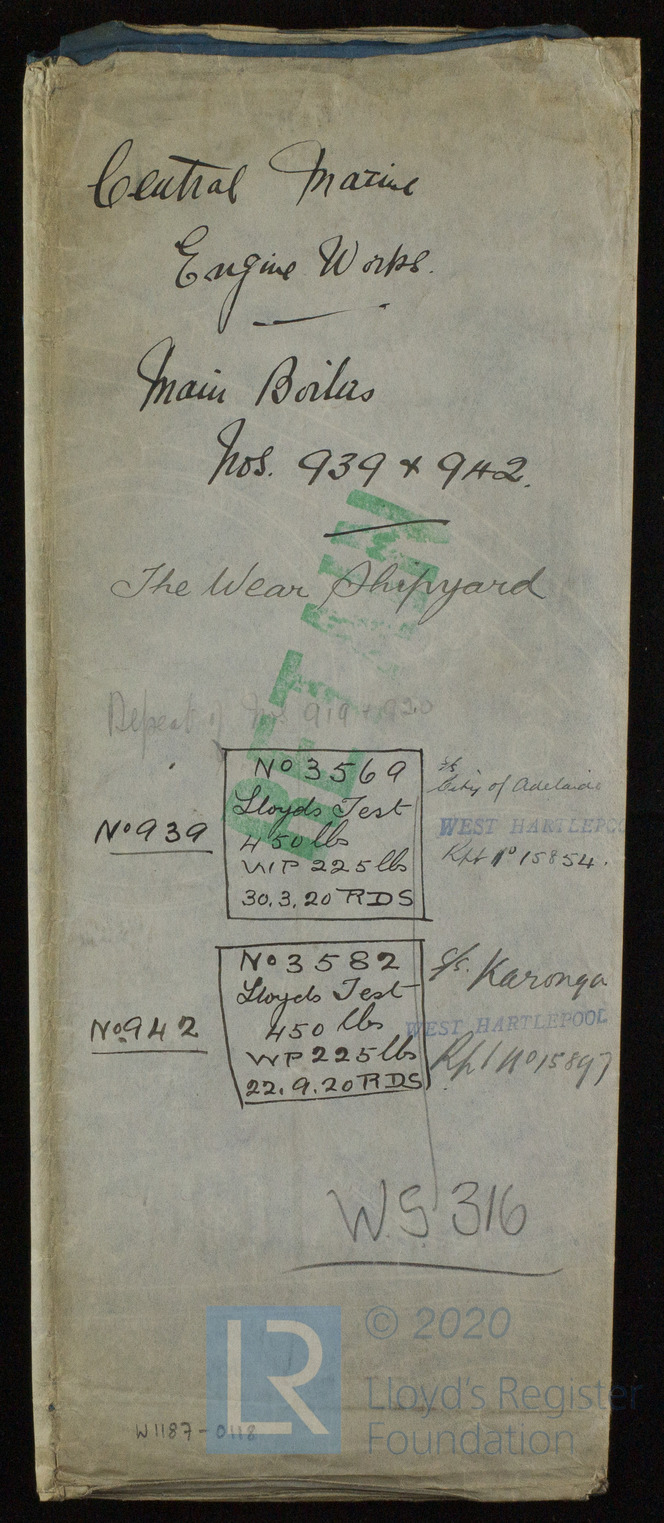 Central Marine
Engine Works.
Main Boilers
Nos. 939 & 942.
RETAIN
The Wear Shipyard
Repeat of Nos 919 & 920
No 939
No 3569
Lloyds Test
450 lbs
WP 225 lbs
30.3.20 RDS
s/s
City of Adelaide
WEST HARTLEPOO
Rpt No 15854.
No 942
No 3582
Lloyds Test
450 lbs
WP 225 lbs
22.9.20 RDS
s/s. Karonga
WEST HARTLEPOOL
Rpt No 15897
W.S. 316
LR
© 2020
Lloyd's Register
Foundation
W1187-0118